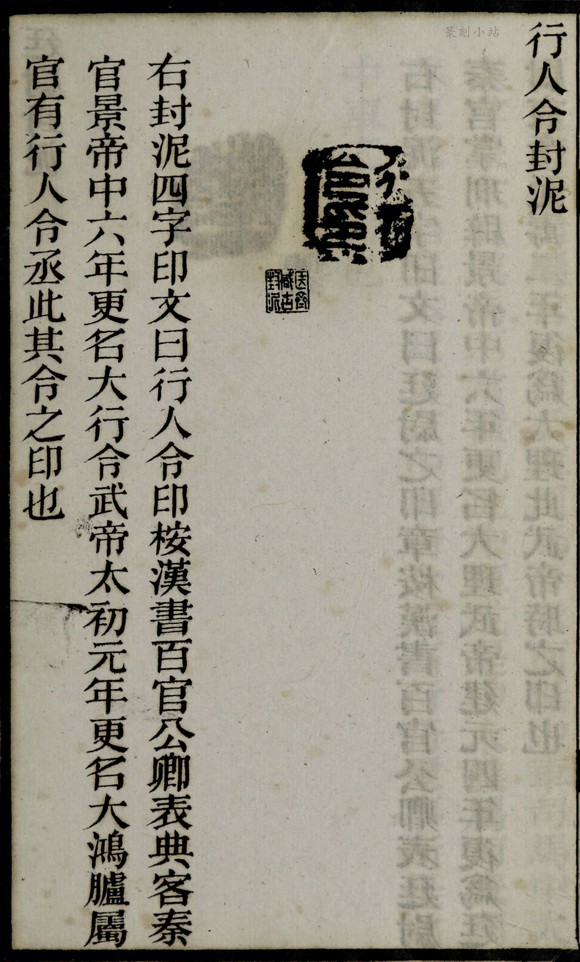 篆刻小站
行人令封泥
右封泥四字印文曰行人令印桉漢書百官公卿表典客秦
官景帝中六年更名大行令武帝太初元年更名大鴻臚屬
官有行人令丞此其令之印也